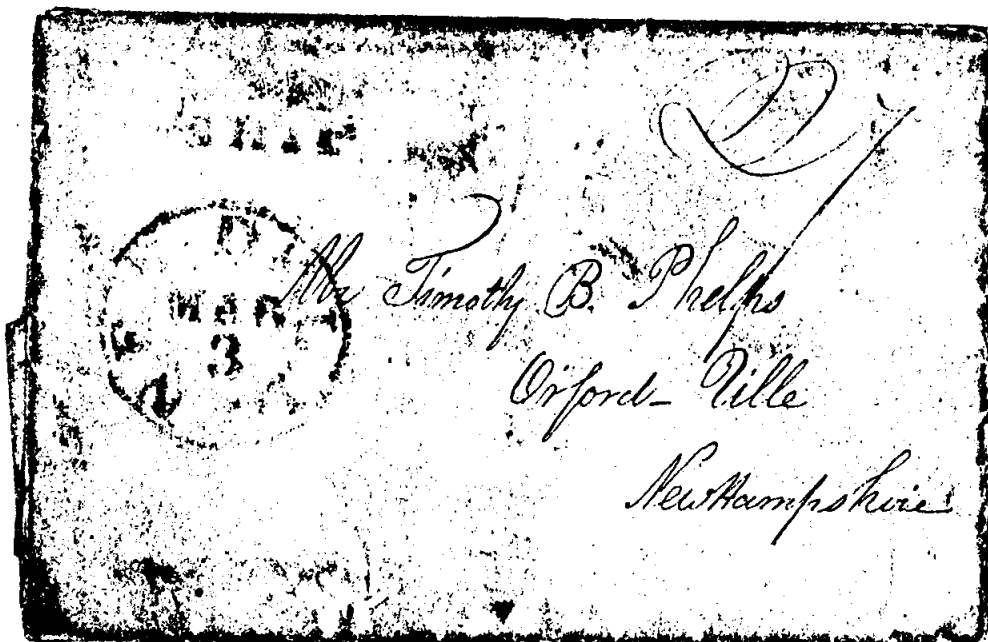 SHIP
MAR
3
Mr Timothy B. Phelps
Orford-Ville
New Hampshire